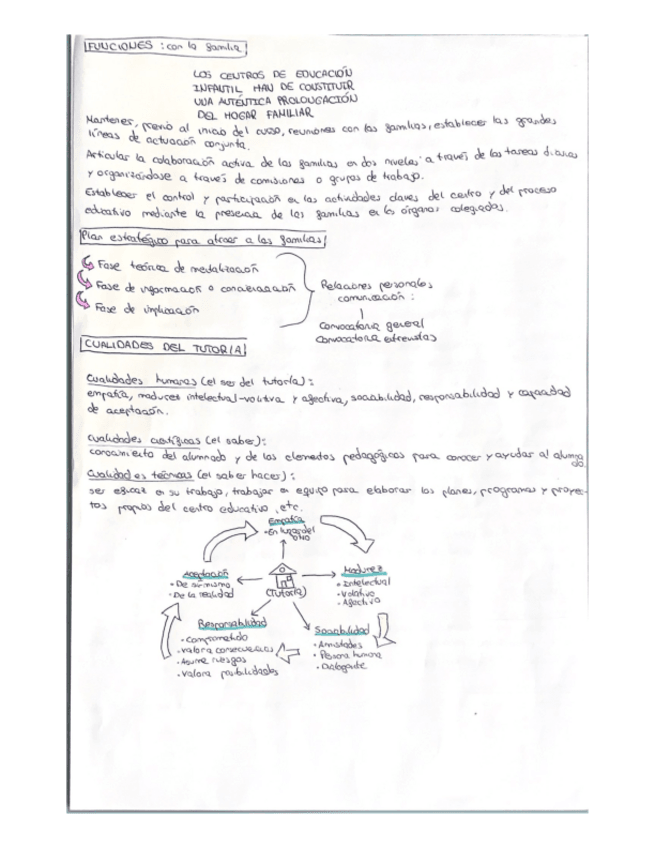 FUNCIONES: con la familia
LOS CENTROS DE EDUCACIÓN
INFANTIL HAN DE CONSTITUIR
UNA AUTÉNTICA PROLONGACIÓN
DEL HOGAR FAMILIAR
Mantener, previo al inicio del curso, reuniones con las familias, establecer las grandes
líneas de actuación conjunta.
Articular la colaboración activa de las familias en dos niveles: a través de las tareas diarias
y organizándose a través de comisiones o grupos de trabajo.
Establecer el control y participación en las actividades claves del centro y del proceso
educativo mediante la presencia de las familias en los órganos colegiados.
Plan estratégico para atraer a las familias
Fase teórica de mentalización
Fase de información o concienciación
Fase de implicación
Relaciones personales
comunicación:
Convocatoria general
Convocatoria entrevistas
CUALIDADES DEL TUTOR/A
Cualidades humanas (el ser del tutor/a):
empatía, madurez intelectual-volitiva y afectiva, sociabilidad, responsabilidad y capacidad
de aceptación.
Cualidades científicas (el saber):
conocimiento del alumnado y de los elementos pedagógicos para conocer y ayudar al alumna
do.
Cualidades técnicas (el saber hacer):
ser eficaz en su trabajo, trabajar en equipo para elaborar los planes, programas y proyec-
tos propios del centro educativo, etc.
Empatía
• En lugar del
otro
Aceptación
• De sí mismo
• De la realidad
Madurez
• Intelectual
• Volativo
• Afectivo
(Tutoría)
Responsabilidad
• Comprometido
• Valora consecuencias
• Asume riesgos
• Valora posibilidades
Sociabilidad
• Amistades
• Persona humana
• Dialogante